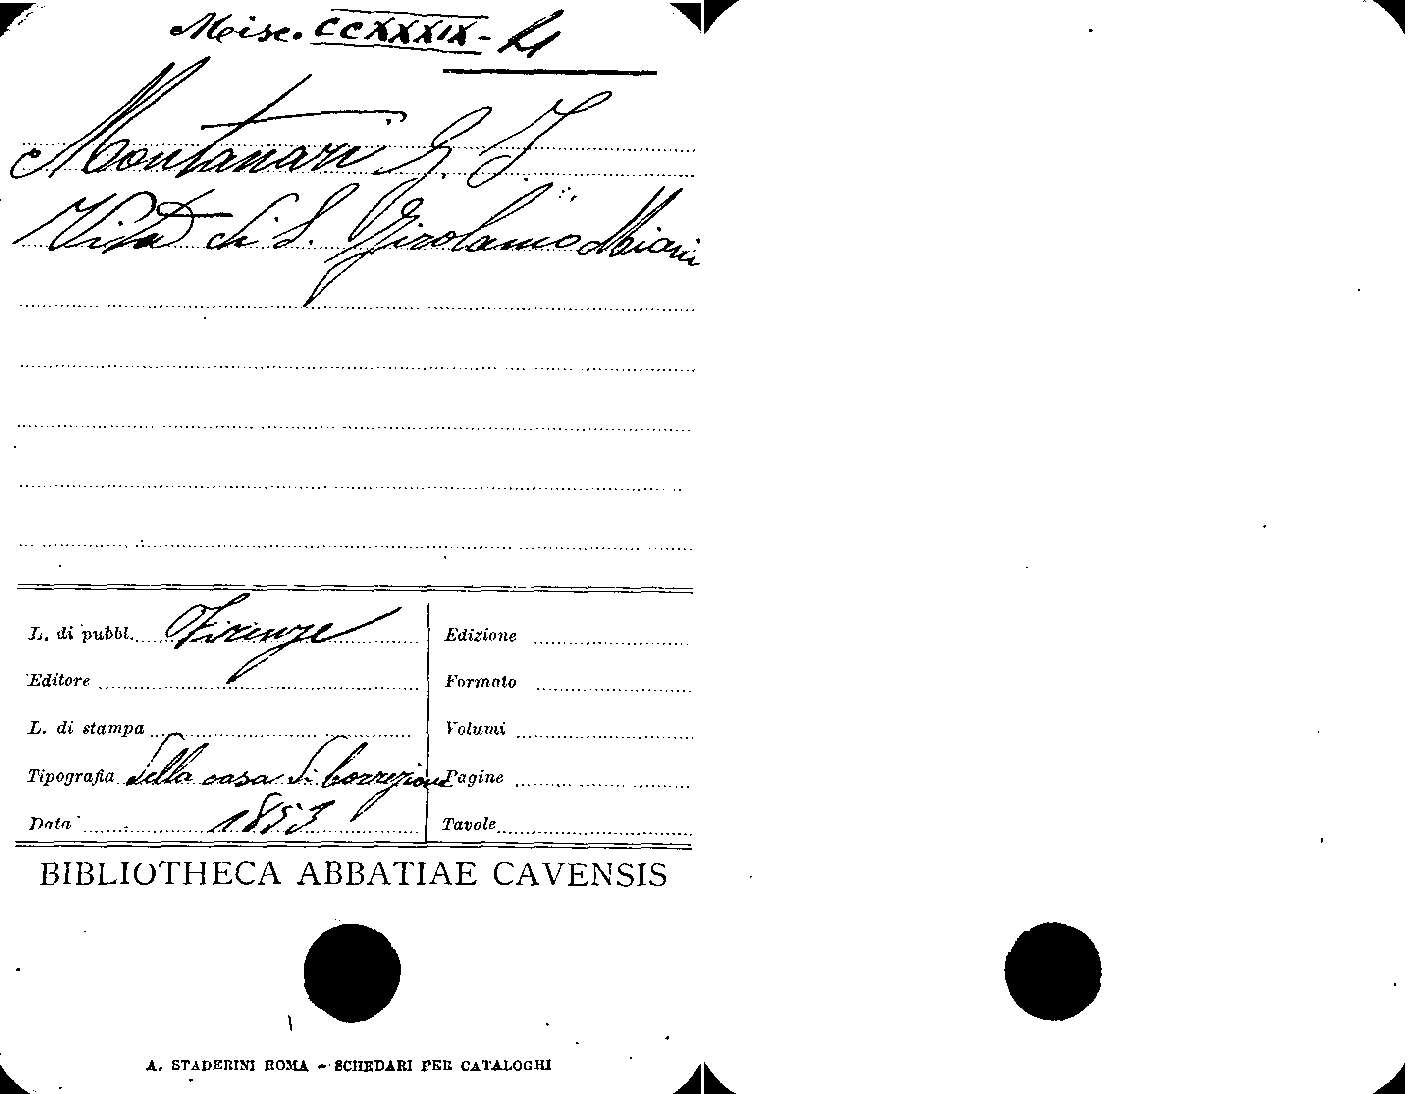 Misc. CCXXXIX-
Montanari G. I.
Vita di S. Girolamo Miani
L. di pubbl. Firenze
Edizione
Editore
Formato
L. di stampa
Volumi
Tipografia Della casa di Correzione
Pagine
Data 1853
Tavole
BIBLIOTHECA ABBATIAE CAVENSIS
A. STADERINI ROMA - SCHEDARI PER CATALOGHI